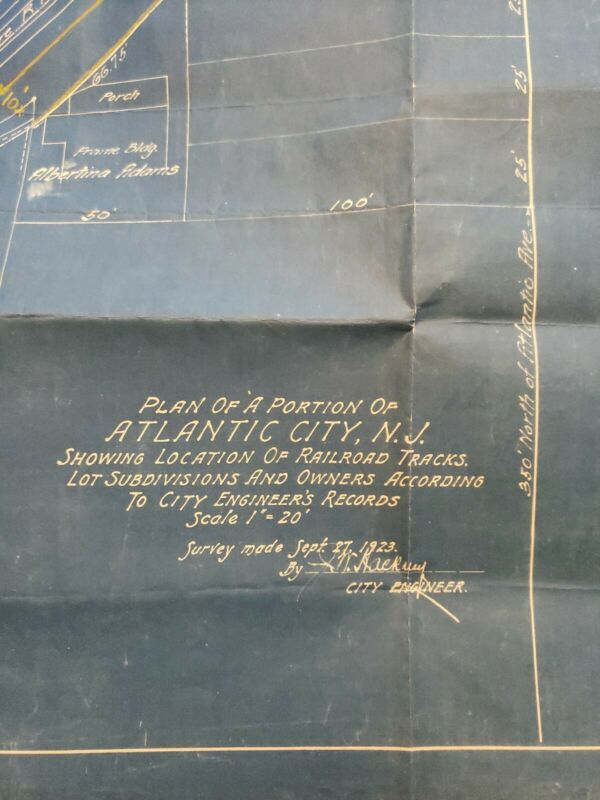 66.75'
10'
Porch
25'
Frame Bldg.
Albertina Adams
25'
50'
100'
350' North of Atlantic Ave.
PLAN OF A PORTION OF
ATLANTIC CITY, N.J.
SHOWING LOCATION OF RAILROAD TRACKS.
LOT SUBDIVISIONS AND OWNERS ACCORDING
TO CITY ENGINEER'S RECORDS
Scale 1" = 20'
Survey made Sept. 27, 1923.
By
CITY ENGINEER.